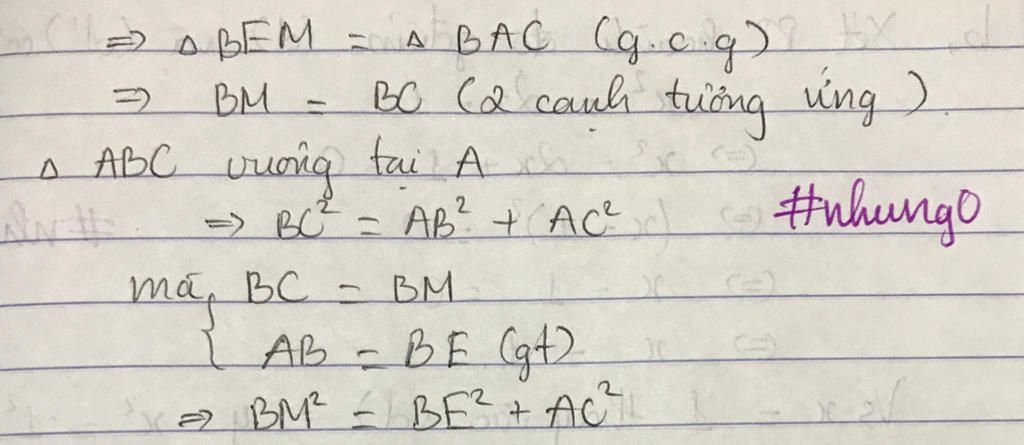 => Δ BEM = Δ BAC (g.c.g)
=> BM = BC (2 cạnh tương ứng)
Δ ABC vuông tại A
=> BC² = AB² + AC²
#nhung0
mà { BC = BM
AB = BE (gt)
=> BM² = BE² + AC²